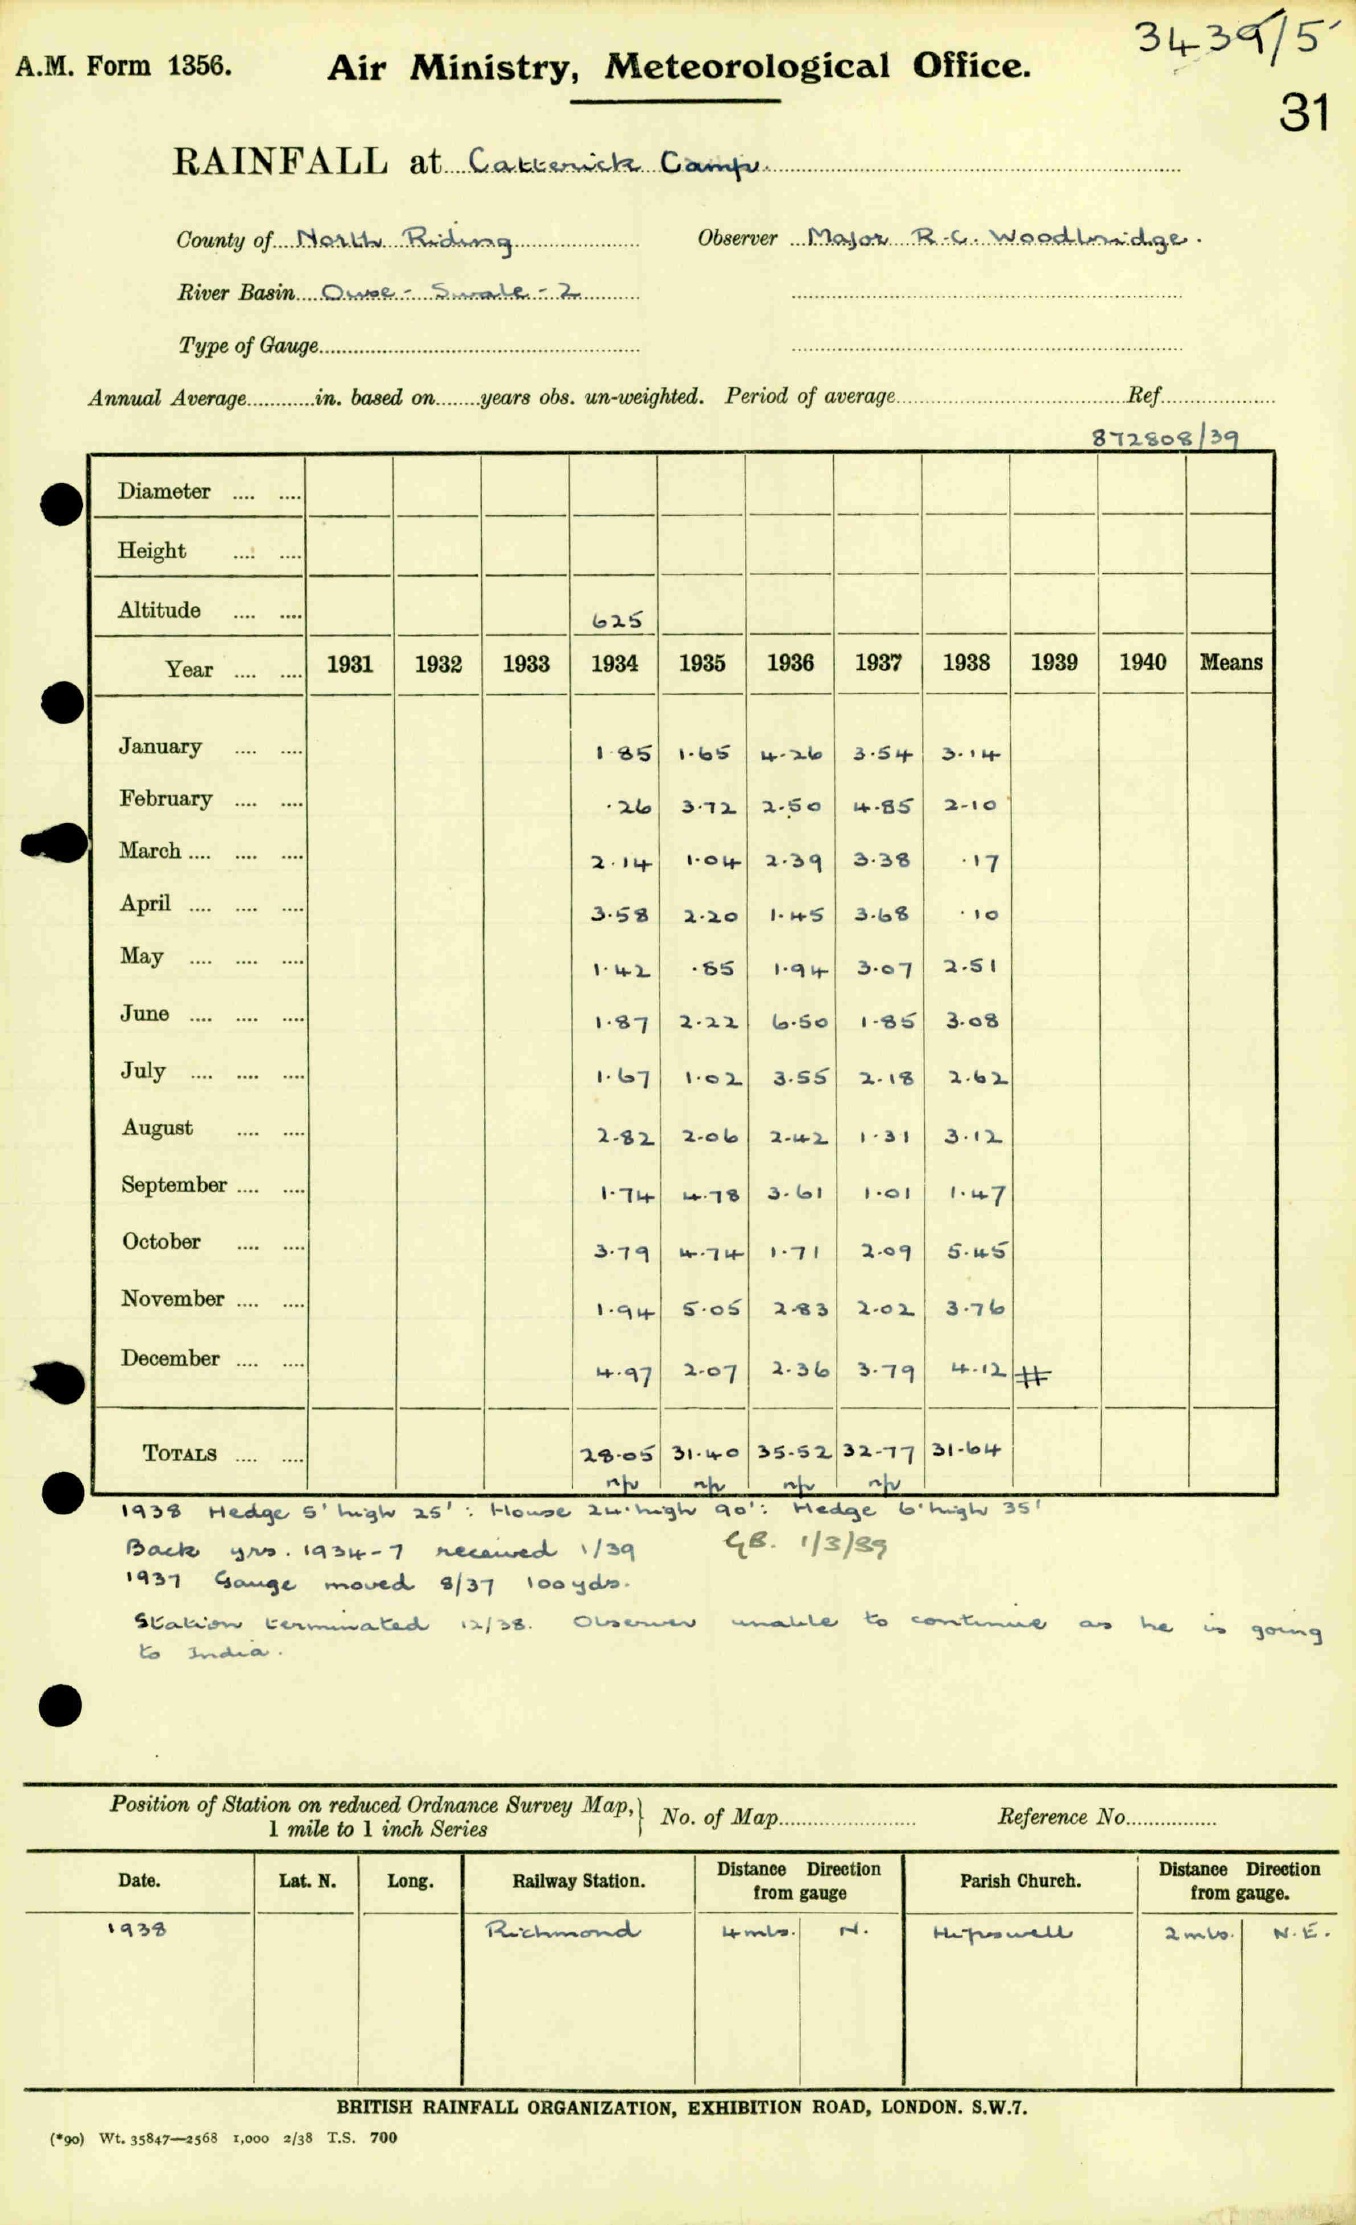 3439/5
A.M. Form 1356. Air Ministry, Meteorological Office.
31
RAINFALL at Catterick Camp.
County of North Riding Observer Major R.C. Woodbridge.
River Basin Ouse - Swale - 2
Type of Gauge
Annual Average in. based on years obs. un-weighted. Period of average Ref.
872808/39
Diameter
Height
Altitude 625
Year 1931 1932 1933 1934 1935 1936 1937 1938 1939 1940 Means
January 1.85 1.65 4.26 3.54 3.14
February .26 3.72 2.50 4.85 2.10
March 2.14 1.04 2.39 3.38 .17
April 3.58 2.20 1.45 3.68 .10
May 1.42 .85 1.94 3.07 2.51
June 1.87 2.22 6.50 1.85 3.08
July 1.67 1.02 3.55 2.18 2.62
August 2.82 2.06 2.42 1.31 3.12
September 1.74 4.78 3.61 1.01 1.47
October 3.79 4.74 1.71 2.09 5.45
November 1.94 5.05 2.83 2.02 3.76
December 4.97 2.07 2.36 3.79 4.12 #
TOTALS 28.05 31.40 35.52 32.77 31.64
n/p n/p n/p n/p
1938 Hedge 5' high 25' : House 24' high 90' : Hedge 6' high 35'
Back yrs. 1934-7 received 1/39 GB. 1/3/39
1937 Gauge moved 8/37 100yds.
Station terminated 12/38. Observer unable to continue as he is going
to India.
Position of Station on reduced Ordnance Survey Map, 1 mile to 1 inch Series } No. of Map Reference No.
Date. Lat. N. Long. Railway Station. Distance Direction from gauge Parish Church. Distance Direction from gauge.
1938 Richmond 4 mls. N. Hipswell 2 mls. N.E.
BRITISH RAINFALL ORGANIZATION, EXHIBITION ROAD, LONDON. S.W.7.
(*90) Wt. 35847—2568 1,000 2/38 T.S. 700